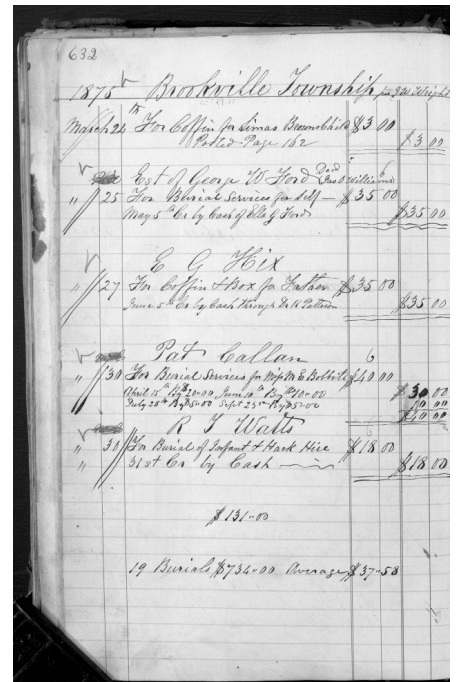 632
1875 Brookville Township per J W Wright
March 24th For Coffin for Simas Browns Child $3 00
Posted Page 162 $3 00
Est of George W Ford Deed Williams
" 25 For Burial Services for Self $35 00
May 5th Cr by Cash of Ella G Ford $35 00
E G Hix
" 27 For Coffin & Box for Father $35 00
June 5th Cr by Cash through Dr R Patterson $35 00
Pat Callan 6
" 30 For Burial Services for Miss M E Bobbitt $40 00
April 15th By $20=00 June 10th By $10=00 $30 00
July 28th By $5=00 Sept 23rd By $5=00 10 00
$40 00
R T Watts
" 30 For Burial of Infant & Hack Hire $18 00
" 31st Cr by Cash $18 00
$131=00
19 Burials $734=00 Average $37=58